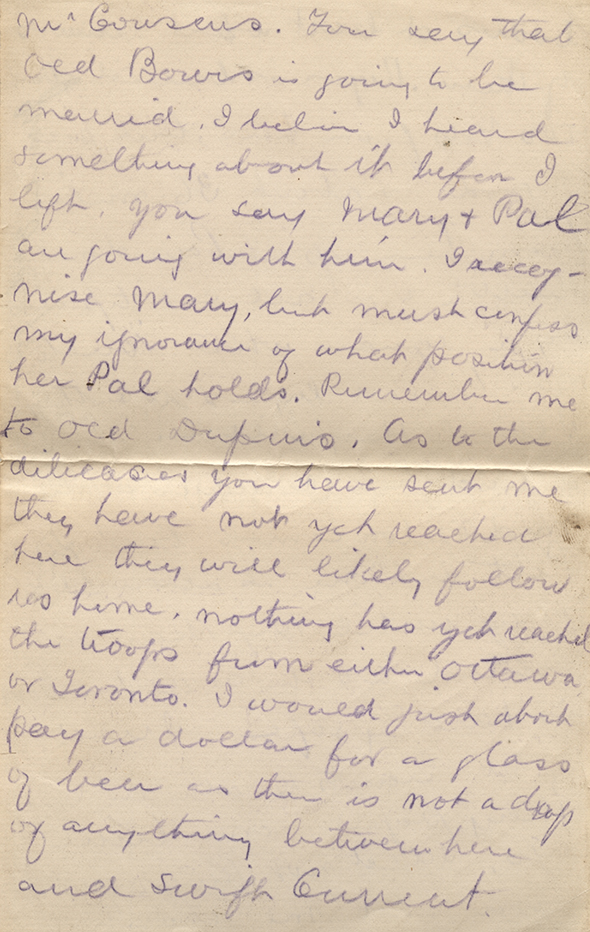 Mr Cousens. You say that
Old Bowers is going to be
married. I beleive I heard
something about it before I
left. you say Mary + Pal
are going with him. I recog-
nise Mary, but must confess
my ignorance of what position
her Pal holds. Remember me
to Old Dupuis. As to the
dilicasies you have sent me
they have not yet reached
here they will likely follow
us home. nothing has yet reached
the troops from either Ottawa
or Toronto. I would just about
pay a dollar for a glass
of beer as there is not a drop
of anything between here
and Swift Current.